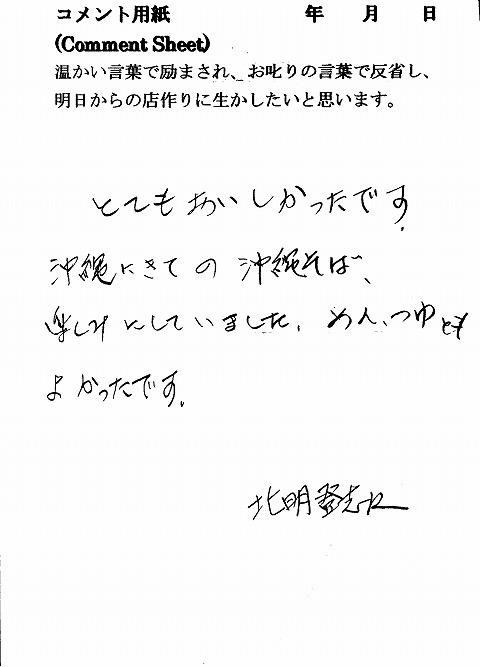 コメント用紙　年　月　日
(Comment Sheet)
温かい言葉で励まされ、お叱りの言葉で反省し、
明日からの店作りに生かしたいと思います。
とてもおいしかったです.
沖縄にきての沖縄そば、
楽しみにしていました. めん、つゆとも
よかったです.
北明